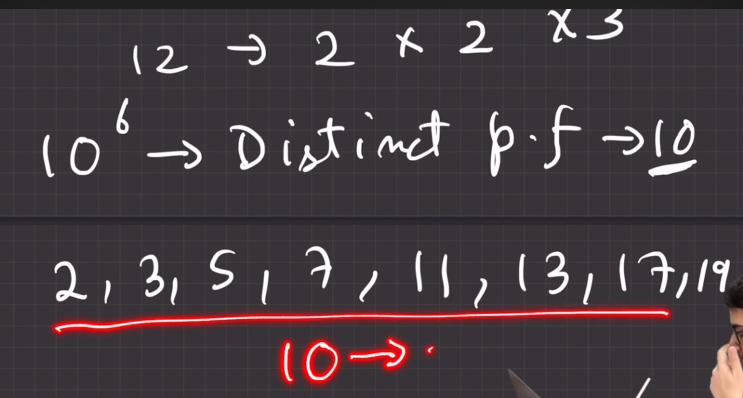 12 → 2 × 2 × 3
10⁶ → Distinct p.f → 10
2, 3, 5, 7, 11, 13, 17, 19
10 →